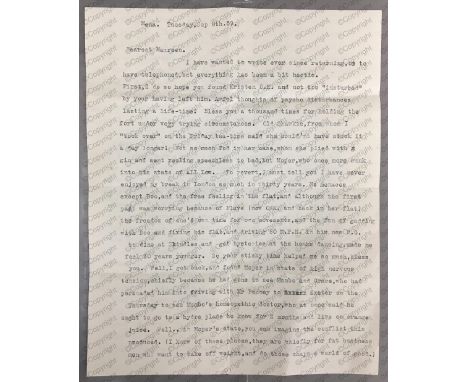 Mena. Tuesday, Sep 8th.59.
Dearest Maureen.
I have wanted to write ever since returning, or to
have telephoned, but everything has been a bit hectic.
First, I do so hope you found Kristen O.K. and not too "disturbed"
by your having left him. Awful thoughts of psycho disturbances
lasting a life-time! Bless you a thousand times for holding the
fort under very trying circumstances. Old from whom I
"took over" on the Friday, tea-time said she could not have stuck it
a day longer! Not so much Ted in her case, whom she plied with
gin and sent reeling speechless to bed, but Moper, who once more sunk
into his state of All Low. To revert, I must tell you I have never
enjoyed my break in London so much in thirty years. No menaces
except Boo, and the free feeling in the flat, and although the first
part was worrying because of Flave (now okay and back in her flat)
the freedom of one's own time for one's movements, and the fun of
with Boo and fixing his flat, and driving 80 M.P.H. in his new
to dine at Skindles and get hysterics at the house dancing, made me
feel 30 years younger. So your sticky time helped me so much, bless
you. Well, I got back, and found Moper in state of high nervous
tension, chiefly because he had been to see Mambo and Grace, who had
persuaded him into driving with Mr Penney to Exeter on the
Thursday to see homeopathic doctor, who at once said he
ought to go to a Hydro place to know for 3 months and live on orange
juice. Well., in Moper's state, you can imagine the conflict this
produced. (I know of these places, they are chiefly for fat business
men who want to take off weight, and do those chaps a world of good.)